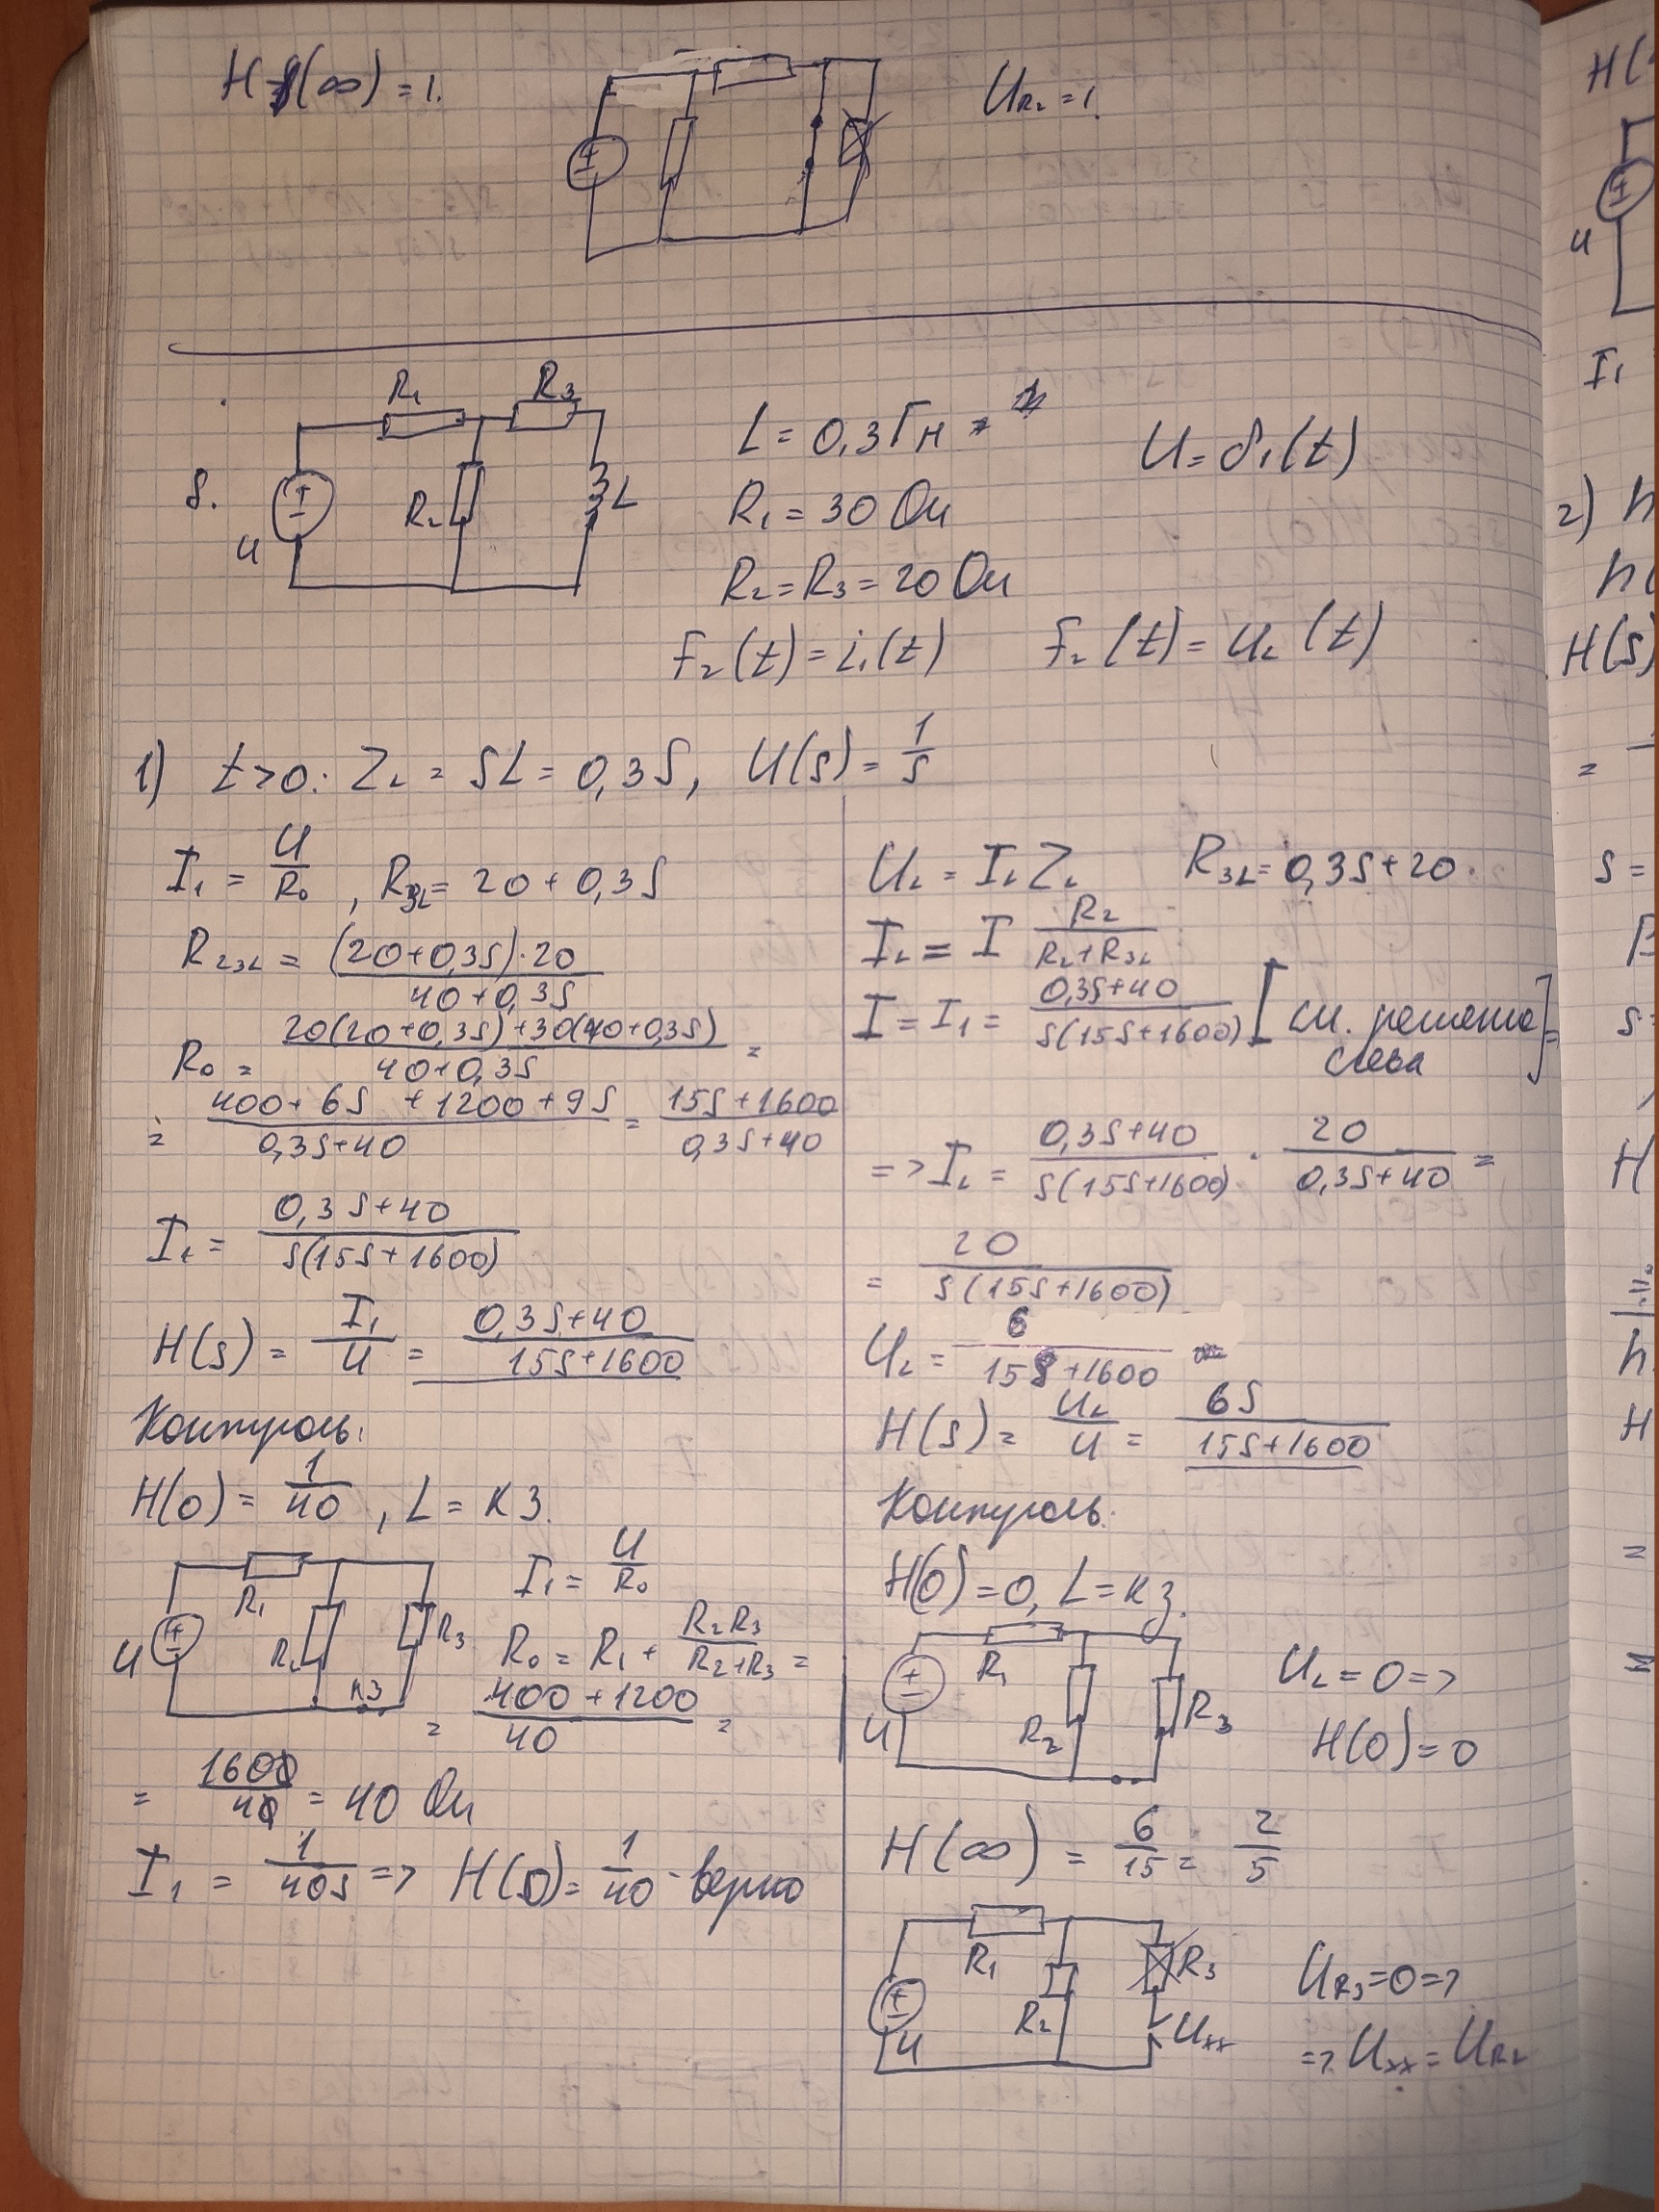 H(∞) = 1.
U_R₂ = 1.
8.
R₁
R₃
R₂
L
U
L = 0,3 Гн
R₁ = 30 Ом
R₂ = R₃ = 20 Ом
U = δ₁(t)
F₂(t) = i₁(t)
F₂(t) = U_L(t)
1) t>0: Z_L = SL = 0,3S, U(s) = 1/s
I₁ = U/R₀, R₃L = 20 + 0,3S
R₂₃L = (20+0,3S)·20 / 40+0,3S
R₀ = 20(20+0,3S)+30(40+0,3S) / 40+0,3S =
= 400+6S+1200+9S / 0,3S+40 = 15S+1600 / 0,3S+40
I₁ = 0,3S+40 / S(15S+1600)
H(s) = I₁/U = 0,3S+40 / 15S+1600
Контроль:
H(0) = 1/40, L = КЗ.
U
R₁
R₂
R₃
КЗ
I₁ = U/R₀
R₀ = R₁ + R₂R₃ / R₂+R₃ =
= 400+1200 / 40 =
= 1600/40 = 40 Ом
I₁ = 1/40s => H(0) = 1/40 - верно
U_L = I_L Z_L R₃L = 0,3S+20.
I_L = I R₂ / R₂+R₃L
I = I₁ = 0,3S+40 / S(15S+1600) [см. решение слева] =
=> I_L = 0,3S+40 / S(15S+1600) · 20 / 0,3S+40 =
= 20 / S(15S+1600)
U_L = 6 / 15S+1600
H(s) = U_L/U = 6S / 15S+1600
Контроль:
H(0) = 0, L = КЗ.
U
R₁
R₂
R₃
U_L = 0 =>
H(0) = 0
H(∞) = 6/15 = 2/5
R₁
R₃
R₂
U
Uxx
U_R₃ = 0 =>
=> Uxx = U_R₂
H(
U
I₁
2) h
h(
H(s)
=
s =
β
s =
H
h
H
=